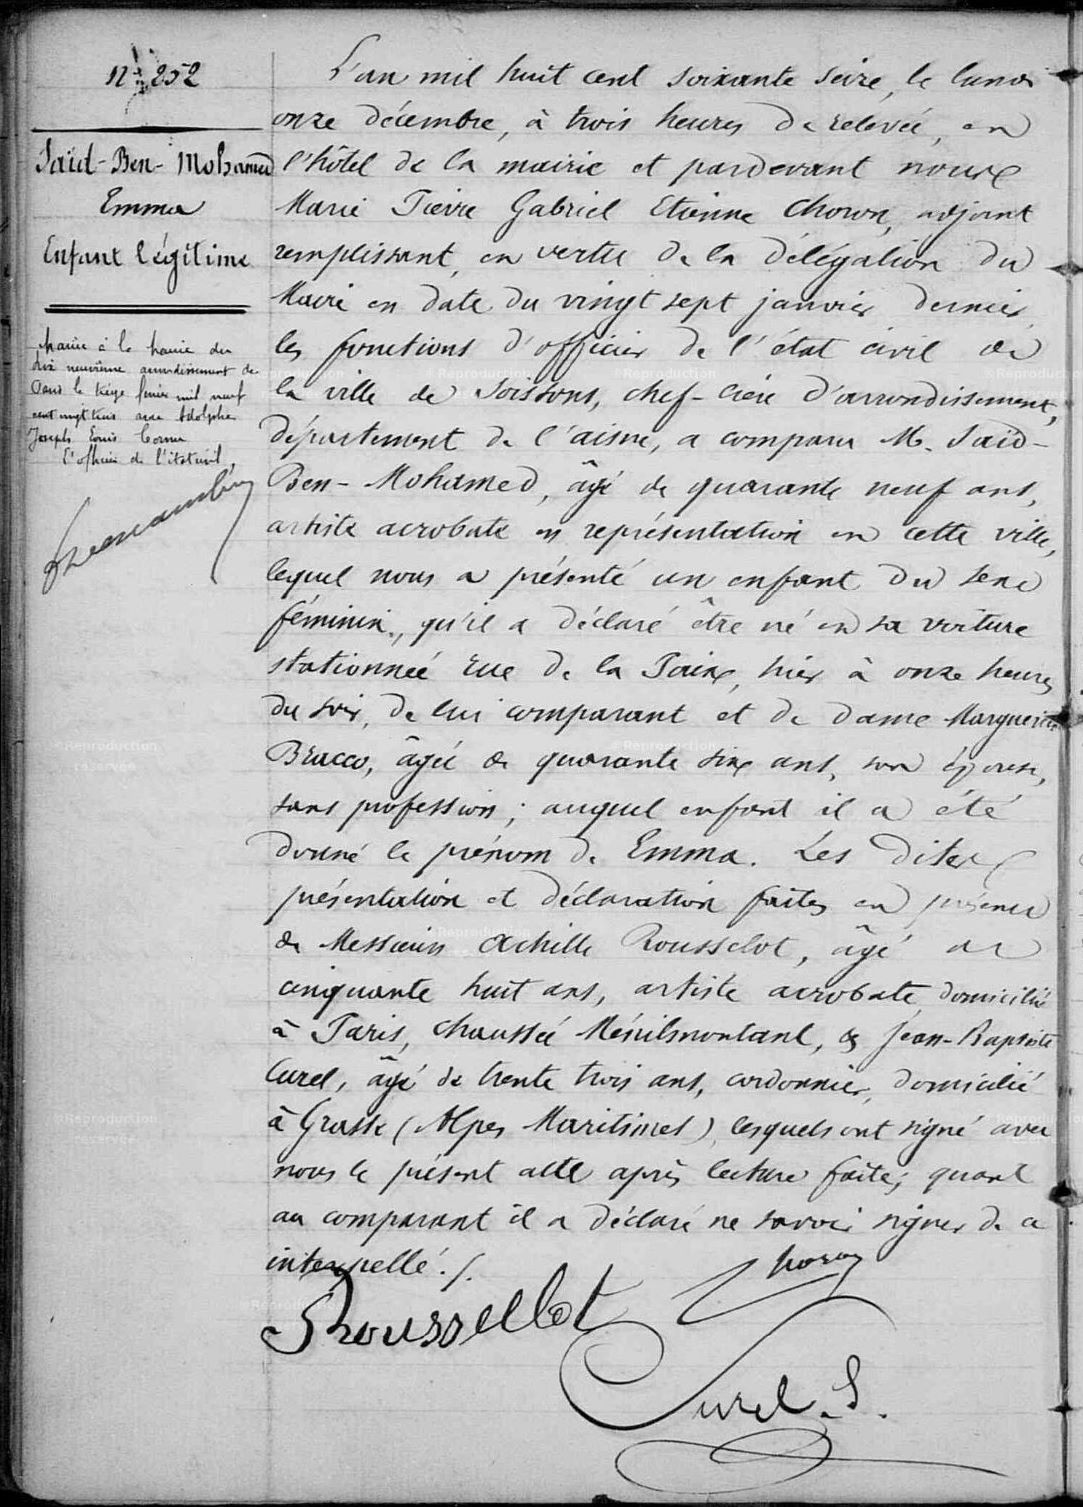 N° 252
Saïd-Ben-Mohamed
Emma
Enfant légitime
Mariée à la mairie du
dix neuvième arrondissement de
Paris le treize février mil neuf
cent vingt trois avec Adolphe
Joseph Louis
L'officier de l'état civil,
L'an mil huit cent soixante seize, le lundi
onze décembre, à trois heures de relevée, en
l'hôtel de la mairie et pardevant nous
Marie Pierre Gabriel Etienne Choron, adjoint
remplissant, en vertu de la délégation du
Maire en date du vingt sept janvier dernier,
les fonctions d'officier de l'état civil de
la ville de Soissons, chef-lieu d'arrondissement,
département de l'aisne, a comparu M. Saïd-
Ben-Mohamed, âgé de quarante neuf ans,
artiste acrobate en représentation en cette ville,
lequel nous a présenté un enfant du sexe
féminin, qu'il a déclaré être né en sa voiture
stationnée rue de la Paix, hier à onze heures
du soir, de lui comparant et de dame Marguerite
Bracco, âgée de quarante six ans, son épouse,
sans profession; auquel enfant il a été
donné le prénom de Emma. Les dites
présentation et déclaration faites en présence
de Messieurs Achille Rousselot, âgé de
cinquante huit ans, artiste acrobate, domicilié
à Paris, chaussée Ménilmontant, & Jean-Baptiste
Curel, âgé de trente trois ans, cordonnier, domicilié
à Grasse (Alpes Maritimes), lesquels ont signé avec
nous le présent acte après lecture faite; quant
au comparant il a déclaré ne savoir signer de ce
interpellé./.
Choron
Roussellot
Curel. J.
©Reproduction
réservée